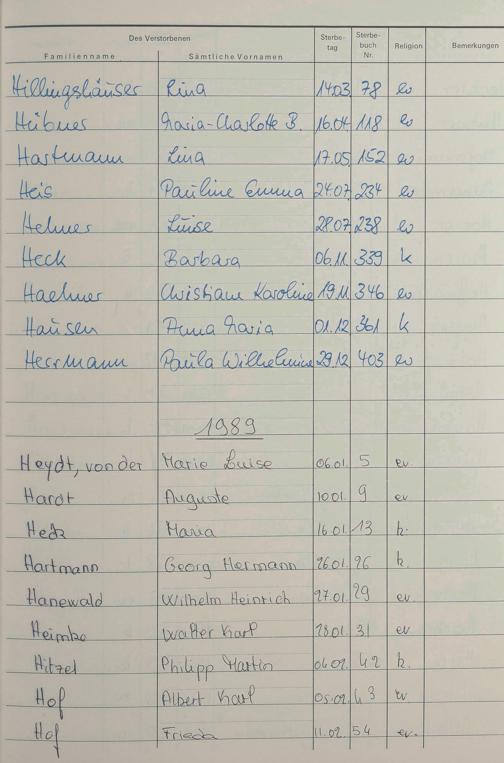 Des Verstorbenen Sterbe- Sterbe-
Familienname Sämtliche Vornamen tag buch Nr. Religion Bemerkungen
Hillingshäuser Lina 14.03 78 ev
Hübner Maria-Charlotte B. 16.04 118 ev
Hartmann Lina 17.05 152 ev
Heis Pauline Emma 24.07. 234 ev
Helmer Luise 28.07. 238 ev
Heck Barbara 06.11. 339 k
Haehner Christiane Karoline 19.11. 346 ev
Hausen Anna Maria 01.12 361 k
Herrmann Paula Wilhelmine 29.12 403 ev
1989
Heydt, von der Marie Luise 06.01. 5 ev.
Hardt Auguste 10.01. 9 ev.
Heck Maria 16.01. 13 k.
Hartmann Georg Hermann 26.01. 26 k.
Hanewald Wilhelm Heinrich 27.01. 29 ev.
Heimbo Walter Karl 28.01. 31 ev
Hitzel Philipp Martin 04.02. 42 k.
Hof Albert Karl 05.02. 43 ev.
Hof Frieda 11.02. 54 ev.